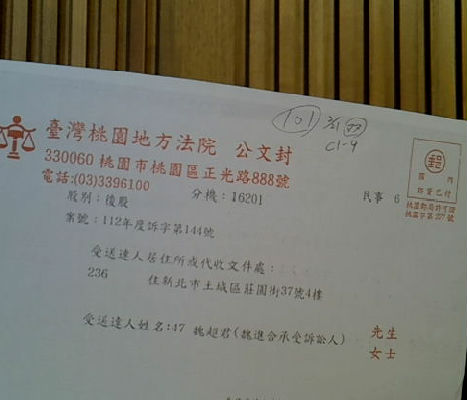 臺灣桃園地方法院 公文封
330060 桃園市桃園區正光路888號
電話:(03)3396100
股別:復股 分機:16201
民事 6
案號:112年度訴字第144號
受送達人居住所或代收文件處:
236 住新北市土城區莊園街37號4樓
受送達人姓名:47 魏超君(魏進合承受訴訟人) 先生
女士
101
C1-9
郵
國內
郵資已付
桃園郵局許可證